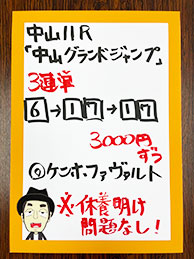 中山11R
「中山グランドジャンプ」
3連単
6→17→17
3000円
ずつ
◎ケンホファヴァルト
※休養明け
問題なし!